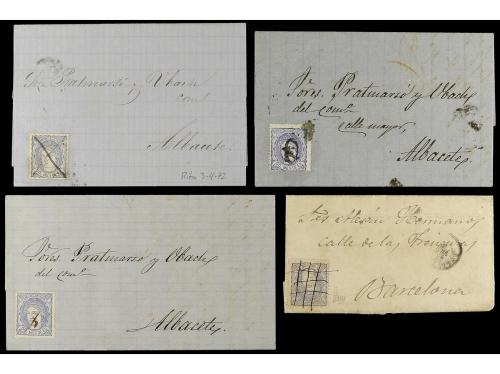 Pratmarsó y Obach
com.o
Albacete.
Riba 3-4-72
Sres. Pratmarsó y Obach
del com.o
calle mayor,
Albacete.
Sres. Pratmarsó y Obach
del com.o
Albacete.
Hermanos
calle de las
Barcelona